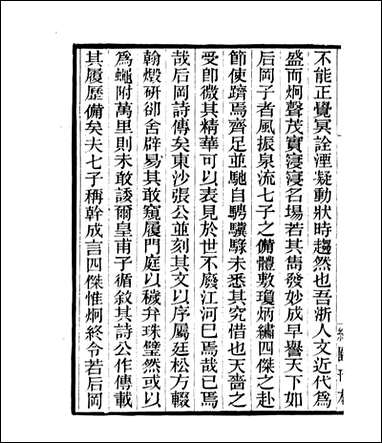 不能正覺冥詮湮凝動狀時趨然也吾浙人文近代爲
盛而炯聲茂實寖寖名場若其雋發妙成早譽天下如
后岡子者風振泉流七子之備體敷瓊炳繡四傑之赴
節使躋焉齊足並馳自騁驥騄未悉其究惜也天嗇之
受卽微其精華可以表見於世不廢江河已焉哉已焉
哉后岡詩傳矣東沙張公並刻其文以序屬廷松方輟
翰燬研卻舍辟易其敢窺履門庭以穢弁珠璧然或以
爲蠅附萬里則未敢諉爾皇甫子循敘其詩公作傳載
其履歷備矣夫七子稱幹成言四傑惟炯終令若后岡